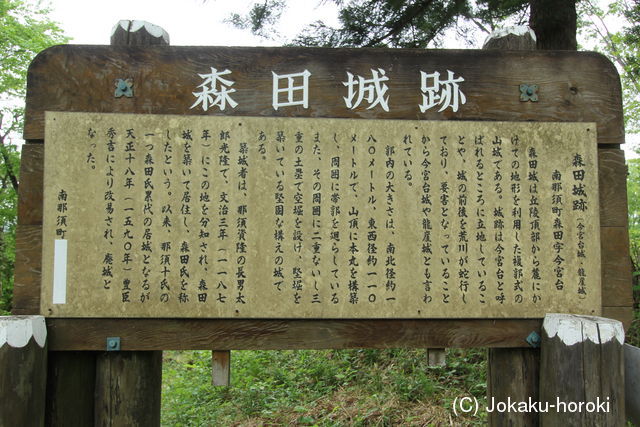 森田城跡
森田城跡（今宮台城・龍崖城）
南那須町森田字今宮台
森田城は丘陵頂部から麓にか
けての地形を利用した複郭式の
山城である。城跡は今宮台と呼
ばれるところに立地しているこ
とや、城の前後を荒川が蛇行し
ており、要害となっていること
から今宮台城や龍崖城とも言わ
れている。
郭内の大きさは、南北径約一
八〇メートル、東西径約一一〇
メートルで、山頂に本丸を構築
し、周囲に帯郭を廻らしている
また、その周囲に二重ないし三
重の土塁で空堀を設け、堅堀を
築いている堅固な構えの城で
ある。
築城者は、那須資隆の長男太
郎光隆で、文治三年（一一八七
年）にこの地を分知され、森田
城を築いて居住し、森田氏を称
したという。以来、那須十氏の
一つ森田氏累代の居城となるが
天正十八年（一五九〇年）豊臣
秀吉により改易され、廃城と
なった。
南那須町
(C) Jokaku-horoki